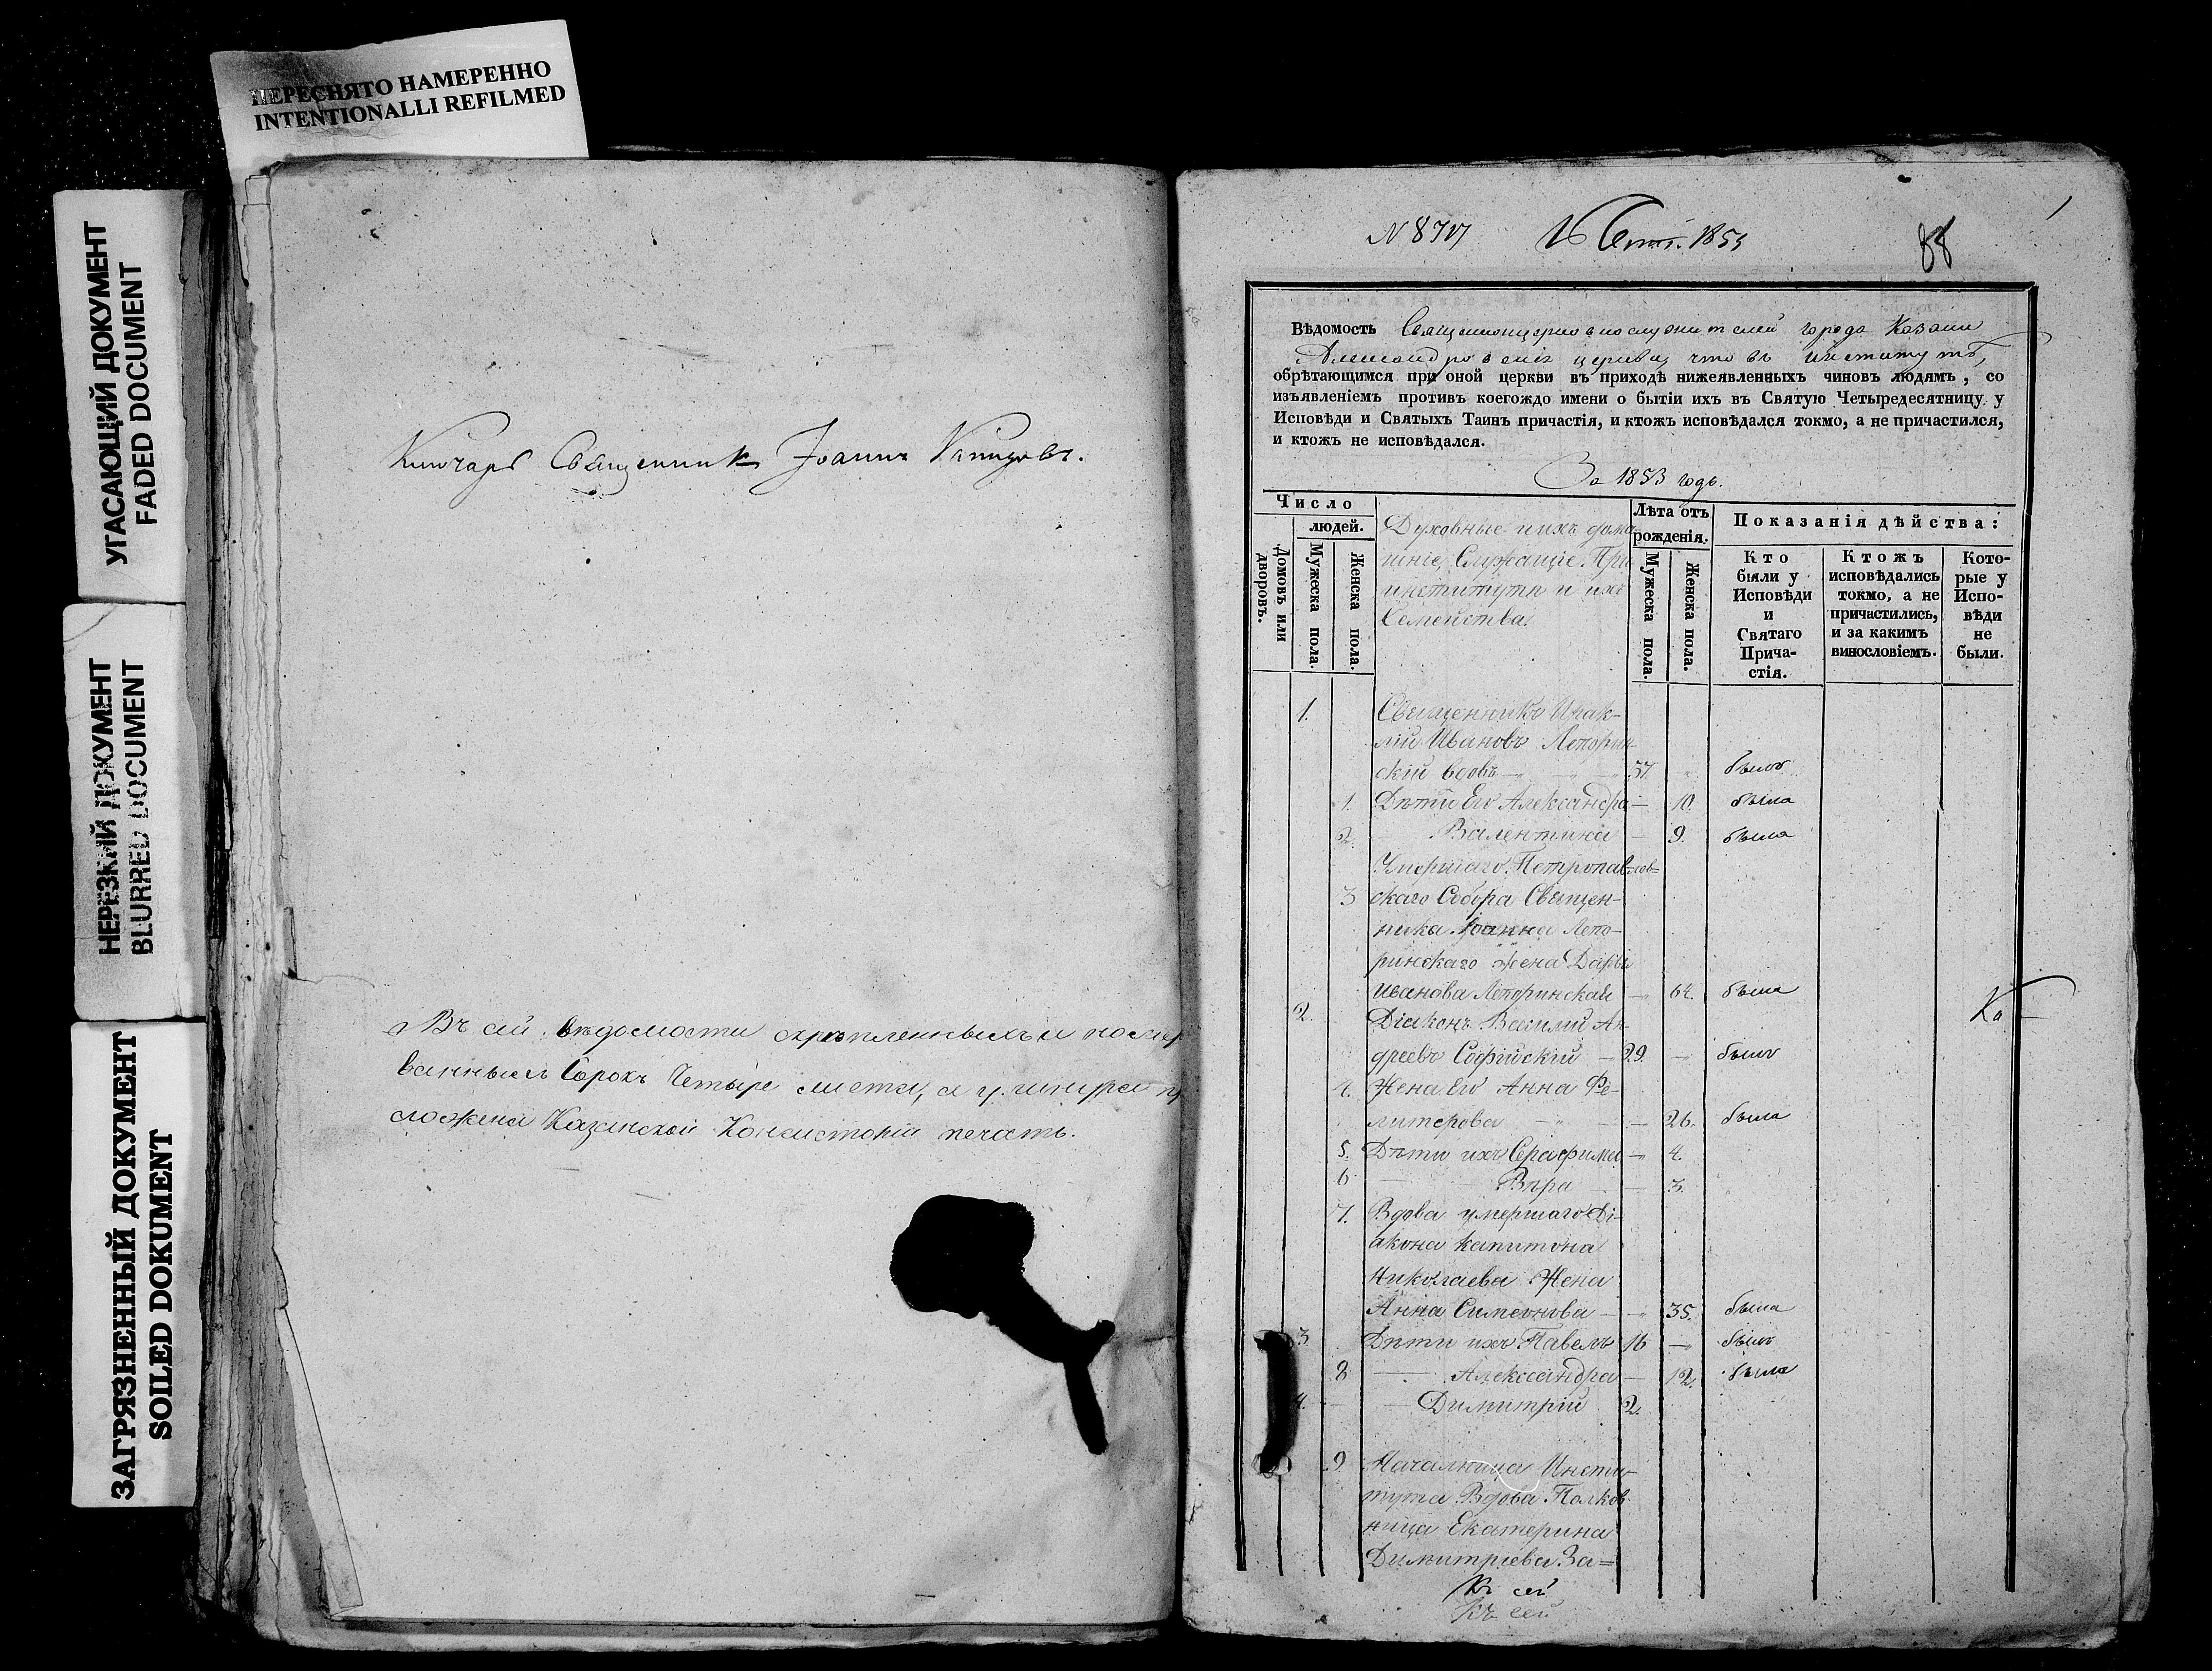 ПЕРЕСНЯТО НАМЕРЕННО
INTENTIONALLI REFILMED
УГАСАЮЩИЙ ДОКУМЕНТ
FADED DOCUMENT
НЕРЕЗКИЙ ДОКУМЕНТ
BLURRED DOCUMENT
ЗАГРЯЗНЕННЫЙ ДОКУМЕНТ
SOILED DOKUMENT
Священникъ Іоаннъ
Въ сей вѣдомости скрѣпленныхъ и номеро
ванныхъ Сорокъ Четыре листа, а у шнура при
ложена Казанской Консисторіи печать.
88
Вѣдомость Священноцерковнослужителей города Казани
Александровскія церкви, что въ институтѣ,
обрѣтающимся при оной церкви въ приходѣ нижеявленныхъ чиновъ людямъ, со
изъявленіемъ противъ коегождо имени о бытіи ихъ въ Святую Четыредесятницу у
Исповѣди и Святыхъ Таинъ причастія, и ктожъ исповѣдался токмо, а не причастился,
и ктожъ не исповѣдался.
За 1853 годъ.
Число
людей.
Домовъ или дворовъ.
Мужеска пола.
Женска пола.
Духовные и ихъ дома-
шніе, Служащіе При
институтѣ и ихъ
Семейства
Лѣта отъ
рожденія.
Мужеска пола.
Женска пола.
Показанія дѣйства:
Кто
были у
Исповѣди
и
Святаго
Прича-
стія.
Ктожъ
исповѣдались
токмо, а не
причастились,
и за какимъ
винословіемъ.
Кото-
рые у
Испо-
вѣди
не
были.
1. Священникъ Ирак-
лій Ивановъ Лепорин-
скій вдовъ 37 былъ
1. Дѣти Его Александра 10. была
2. Валентина 9. была
Умершаго Петропавлов-
3 скаго Собора Священ-
ника Іоанна Лепо-
ринскаго жена Дарья
Иванова Лепоринская 64. была
2. Діаконъ Василій Ан-
дреевъ Софійскій 29. былъ
4. Жена Его Анна Фе-
литерова 26. была
5. Дѣти ихъ Серафима 4.
6 Вѣра 3.
7. Вдова умершаго Ді-
акона Капитона
Николаева Жена
Анна Симеонова 35. была
3. Дѣти ихъ Павелъ 16 былъ
8 Александра 12. была
4. Димитрій 2.
9 Начальница Инсти-
тута Вдова Полков-
ница Екатерина
Димитріева За=
Къ сей
Къ сей